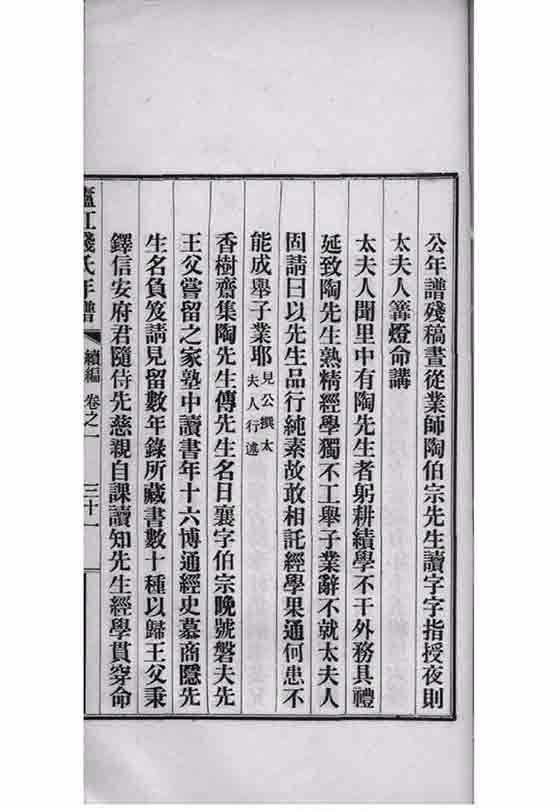 公年譜殘稿晝從業師陶伯宗先生讀字字指授夜則
太夫人篝燈命講
太夫人聞里中有陶先生者躬耕績學不干外務具禮
延致陶先生熟精經學獨不工舉子業辭不就太夫人
固請曰以先生品行純素故敢相託經學果通何患不
能成舉子業耶見公撰太夫人行述
香樹齋集陶先生傳先生名日襄字伯宗晚號磐夫先
王父嘗留之家塾中讀書年十六博通經史慕商隱先
生名負笈請見留數年錄所藏書數十種以歸王父秉
鐸信安府君隨侍先慈親自課讀知先生經學貫穿命
廬江錢氏年譜 續編 卷之一 三十一